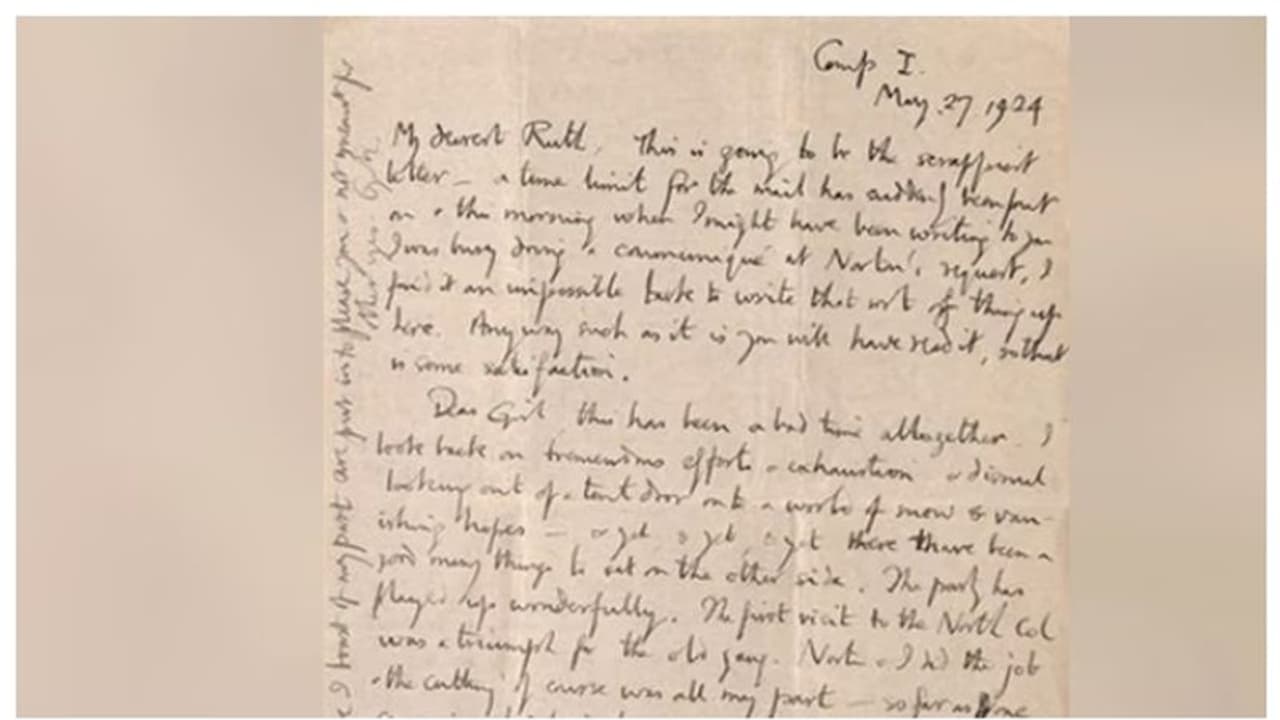 Camp I.
May. 27 1924
My dearest Ruth. This is going to be the scrappiest
letter – a time limit for the mail has suddenly been put
on & this morning when I might have been writing to you
I was busy doing a communiqué at Norton's request. I
find it an impossible task to write that sort of thing up
here. Anyway such as it is you will have read it, so that
is some satisfaction.
Dear Girl, this has been a bad time altogether. I
look back on tremendous efforts & exhaustion & dismal
looking out of a tent door onto a world of snow & van-
ishing hopes – & yet, & yet, & yet there have been a
good many things to set on the other side. The party has
played up wonderfully. The first visit to the North Col
was a triumph for the old gang. Norton & I did the job
& the cutting of course was all my part – so far as one
of my part are put in to please you & not meant for
other eyes. G.M.